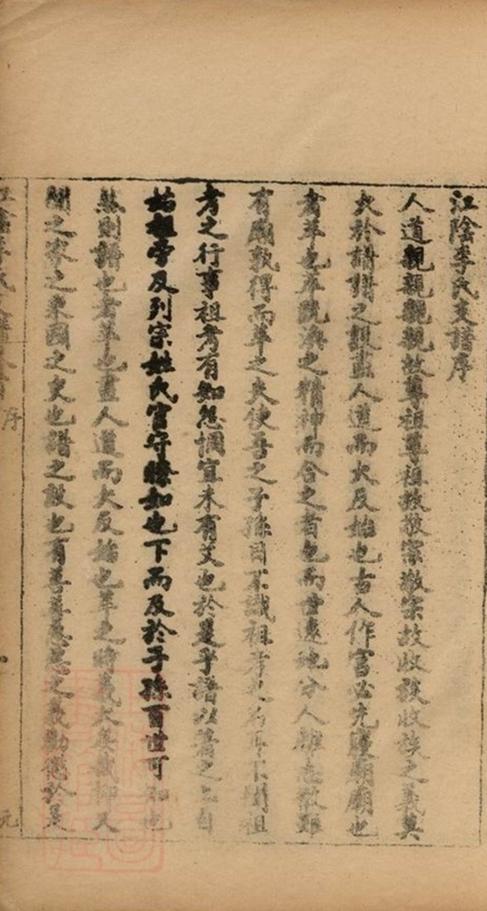 江陰李氏支譜序
人道親親親親故尊祖尊祖故敬宗敬宗故收族收族之義莫
大於譜譜之設盡人道而大反始也古人作宮必先廟廟也
者萃也萃既渙之精神而合之者也而世遠地分人離志散雖
有廟孰得而萃之夫使吾之子孫目不識祖考之名耳不聞祖
考之行事祖考有知怨恫宜未有艾也於是乎譜以萃之上自
始祖旁及列宗姓氏官守瞭如也下而及於子孫百世可知也
然則譜也者萃也盡人道而大反始也萃之時義大矣哉抑又
聞之家之乘國之史也譜之設也有善善惡惡之義勸懲於是
序